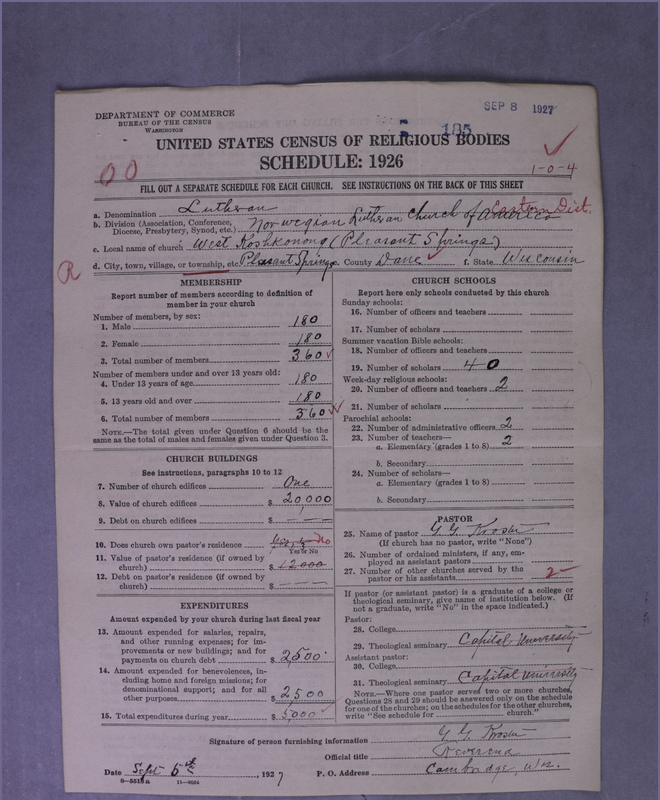 SEP 8 1927
DEPARTMENT OF COMMERCE
BUREAU OF THE CENSUS
WASHINGTON
185
UNITED STATES CENSUS OF RELIGIOUS BODIES
SCHEDULE: 1926
00
1-0-4
FILL OUT A SEPARATE SCHEDULE FOR EACH CHURCH. SEE INSTRUCTIONS ON THE BACK OF THIS SHEET
a. Denomination Lutheran
Eastern Dist.
b. Division (Association, Conference, Diocese, Presbytery, Synod, etc.) Norwegian Lutheran Church of America
c. Local name of church West Koshkonong (Pleasant Springs)
R
d. City, town, village, or township, etc. Pleasant Springs e. County Dane f. State Wisconsin
MEMBERSHIP
Report number of members according to definition of
member in your church
Number of members, by sex:
1. Male 180
2. Female 180
3. Total number of members 360
Number of members under and over 13 years old:
4. Under 13 years of age 180
5. 13 years old and over 180
6. Total number of members 360
NOTE.—The total given under Question 6 should be
same as the total of males and females given under Question 3.
CHURCH BUILDINGS
See instructions, paragraphs 10 to 12
7. Number of church edifices One
8. Value of church edifices $ 20,000
9. Debt on church edifices $ — — —
10. Does church own pastor's residence No
Yes or No
11. Value of pastor's residence (if owned by
church) $ 12000
12. Debt on pastor's residence (if owned by
church) $ — — —
EXPENDITURES
Amount expended by your church during last fiscal year
13. Amount expended for salaries, repairs,
and other running expenses; for im-
provements or new buildings; and for
payments on church debt $ 2,500
14. Amount expended for benevolences, in-
cluding home and foreign missions; for
denominational support; and for all
other purposes $ 2500
15. Total expenditures during year $ 5,000
CHURCH SCHOOLS
Report here only schools conducted by this church
Sunday schools:
16. Number of officers and teachers
17. Number of scholars
Summer vacation Bible schools:
18. Number of officers and teachers
19. Number of scholars 40
Week-day religious schools:
20. Number of officers and teachers 2
21. Number of scholars
Parochial schools:
22. Number of administrative officers 2
23. Number of teachers—
a. Elementary (grades 1 to 8) 2
b. Secondary
24. Number of scholars—
a. Elementary (grades 1 to 8)
b. Secondary
PASTOR
25. Name of pastor G. G.
(If church has no pastor, write "None")
26. Number of ordained ministers, if any, em-
ployed as assistant pastors
27. Number of other churches served by the
pastor or his assistants 2
If pastor (or assistant pastor) is a graduate of a college or
theological seminary, give name of institution below. (If
not a graduate, write "No" in the space indicated.)
Pastor:
28. College
29. Theological seminary Capital University
Assistant pastor:
30. College
31. Theological seminary Capital University
NOTE.—Where one pastor served two or more churches,
Questions 28 and 29 should be answered only on the schedule
for one of the churches; on the schedules for the other churches,
write "See schedule for church."
Signature of person furnishing information G. G.
Official title Reverend
Date Sept 5th, 1927 P. O. Address Cambridge, Wis.
8—5518a 11—8604